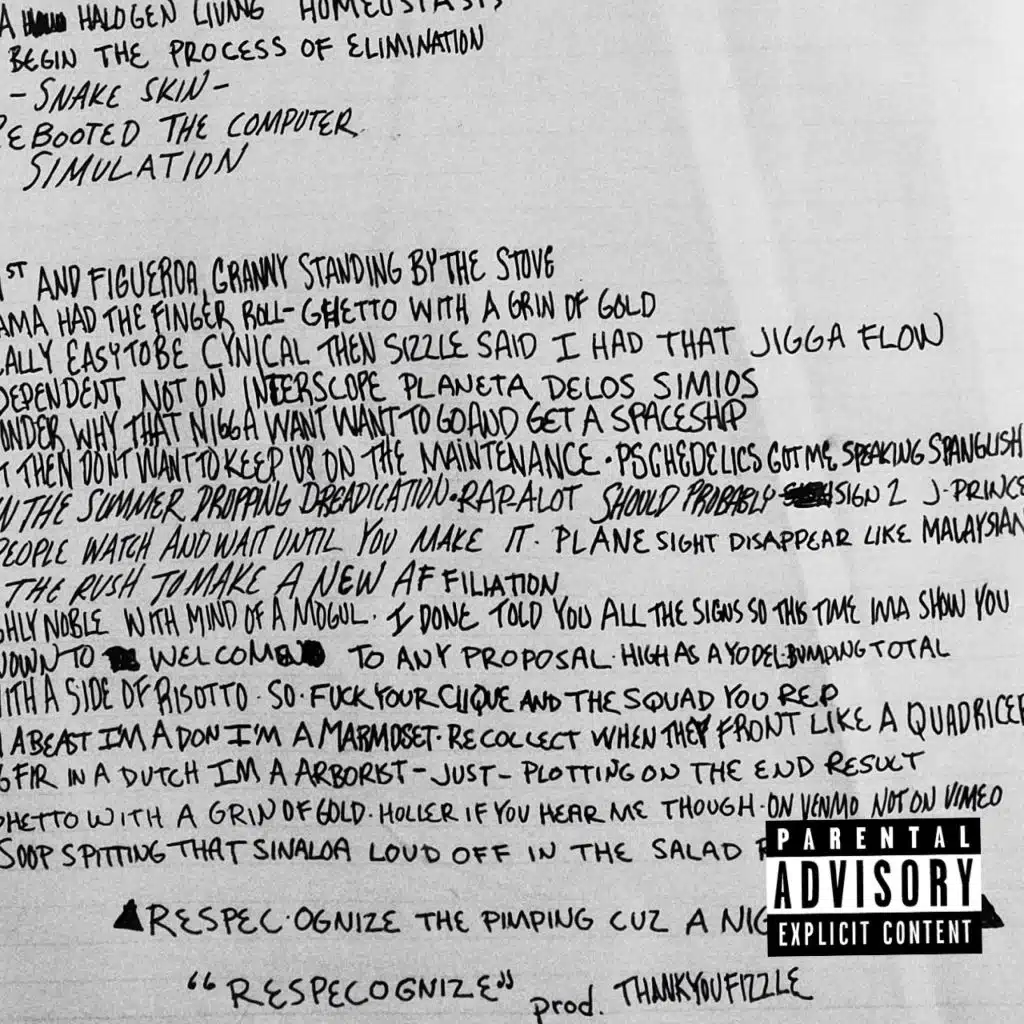 A HALOGEN LIVING HOMEOSTASIS
BEGIN THE PROCESS OF ELIMINATION
- SNAKE SKIN -
REBOOTED THE COMPUTER
SIMULATION
ST AND FIGUEROA, GRANNY STANDING BY THE STOVE
AMA HAD THE FINGER ROLL - GHETTO WITH A GRIN OF GOLD
CALLY EASY TO BE CYNICAL THEN SIZZLE SAID I HAD THAT JIGGA FLOW
DEPENDENT NOT ON INTERSCOPE PLANETA DELOS SIMIOS
ONDER WHY THAT NIGGA WANT WANT TO GO AND GET A SPACESHIP
T THEN DONT WANT TO KEEP UP ON THE MAINTENANCE · PSCHEDELICS GOT ME SPEAKING SPANGLISH
N THE SUMMER DROPPING DREADICATION · RAP-A-LOT SHOULD PROBABLY SIGN 2 J-PRINCE
PEOPLE WATCH AND WAIT UNTIL YOU MAKE IT · PLANE SIGHT DISAPPEAR LIKE MALAYSIAN
THE RUSH TO MAKE A NEW AFFILIATION
GHLY NOBLE WITH MIND OF A MOGUL · I DONE TOLD YOU ALL THE SIGNS SO THIS TIME IMA SHOW YOU
DOWN TO WELCOME TO ANY PROPOSAL · HIGH AS A YODEL · BUMPING TOTAL
ITH A SIDE OF RISOTTO · SO · FUCK YOUR CLIQUE AND THE SQUAD YOU REP
A BEAST IM A DON I'M A MARMOSET · RECOLLECT WHEN THEY FRONT LIKE A QUADRICEP
FIR IN A DUTCH IM A ARBORIST - JUST - PLOTTING ON THE END RESULT
GHETTO WITH A GRIN OF GOLD · HOLLER IF YOU HEAR ME THOUGH · ON VENMO NOT ON VIMEO
SOOP SPITTING THAT SINALOA LOUD OFF IN THE SALAD
RESPEC·OGNIZE THE PIMPING CUZ A NIG
"RESPECOGNIZE" prod. THANKYOUFIZZLE
PARENTAL
ADVISORY
EXPLICIT CONTENT